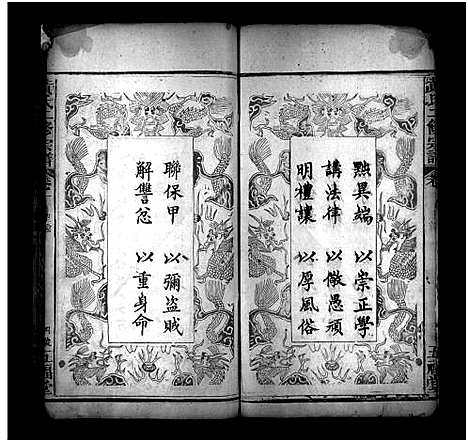 黜異端 以崇正學
講法律 以儆愚頑
明禮讓 以厚風俗
聯保甲 以彌盜賊
解讐忿 以重身命